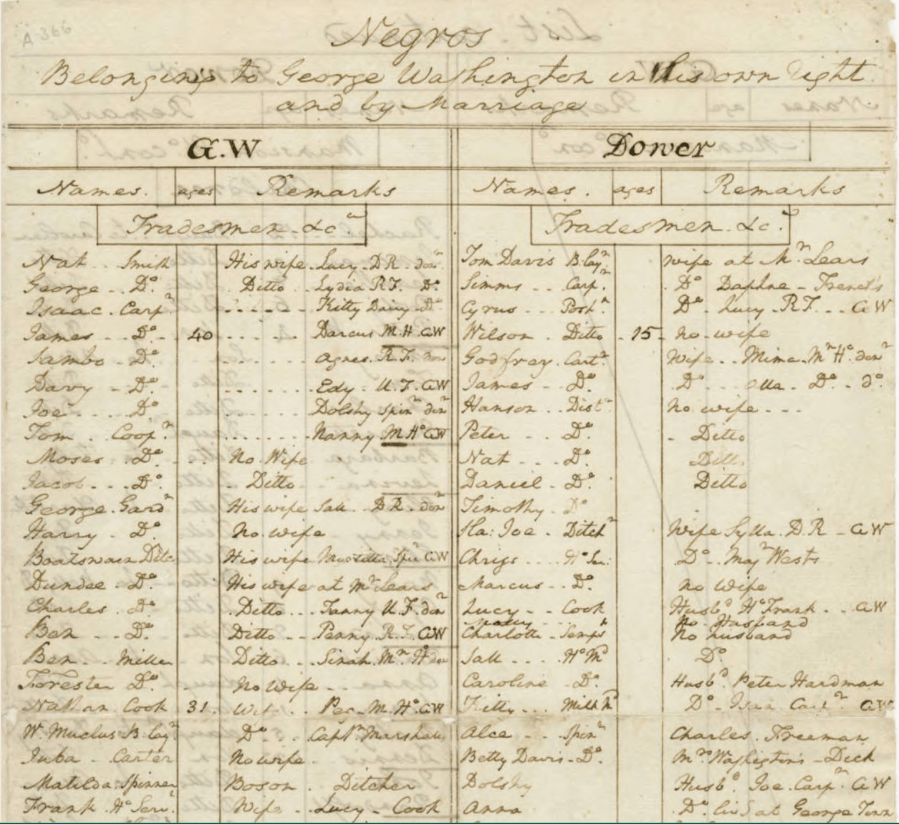 A 366
Negros
Belonging to George Washington in his own right
and by Marriage
G.W Dower
Names. ages Remarks Names. ages Remarks
Tradesmen &c.a Tradesmen &c.a
Nat Smith His wife Lucy D.R. dowr Tom Davis B.layr wife at Mr. Lears
George Do. Ditto Lydia R.F. Do. Simms Carpr. Do. Daphne - French's
Isaac Carpr Kitty Dairy Do. Cyrus Postn Do. Lucy R.F. GW
James Do. 40 Darcus M.H. GW Wilson Ditto 15 no wife
Sambo Do. Agnes R.F. dowr Godfrey Cartr Wife Mima Mn Ho dowr
Davy Do. Edy U.F. GW James Do. Do. Alla Do. do.
Joe Do. Dolshy Spinr dowr Hanson Distr no wife
Tom Coopr Nanny M Ho GW Peter Do. Ditto
Moses Do. No Wife Nat Do. Ditto
Jacob Do. Ditto Daniel Do. Ditto
George Gardr His wife Sall D.R. dowr Timothy Do.
Harry Do. No wife Ha: Joe Ditchr Wife Sylla D.R GW
Boatswain Ditc His wife GW Chriss Ho Ser. Do. May Wests
Dundee Do. His wife at Mr Lears Marcus Do. no Wife
Charles Do. Ditto Fanny U.F. dowr Lucy Cook Husbd. Ho Frank GW
Molly No Husband
Ben Do. Ditto Penny R.F. GW Charlotte Sempss No husband
Ben Miller Ditto Sinah Mn H dow Sall Ho Md Do.
Forrester Do. No Wife Caroline Do. Husbd. Peter Hardman
Nathan Cook 31 Wife Peg M.Ho. GW Kitty Milk Md Do. Isaac Carpr GW
W. Muclus B.layr Do. Captn Marshall Alce Spinr Charles Freeman
Juba Carter No wife Betty Davis Do. Mrs Washington's Dick
Matilda Spinner Boson Ditcher Dolshy Husbd. Joe Carpr GW
Frank Ho Serv. Wife Lucy Cook Anna Do. liv's at George